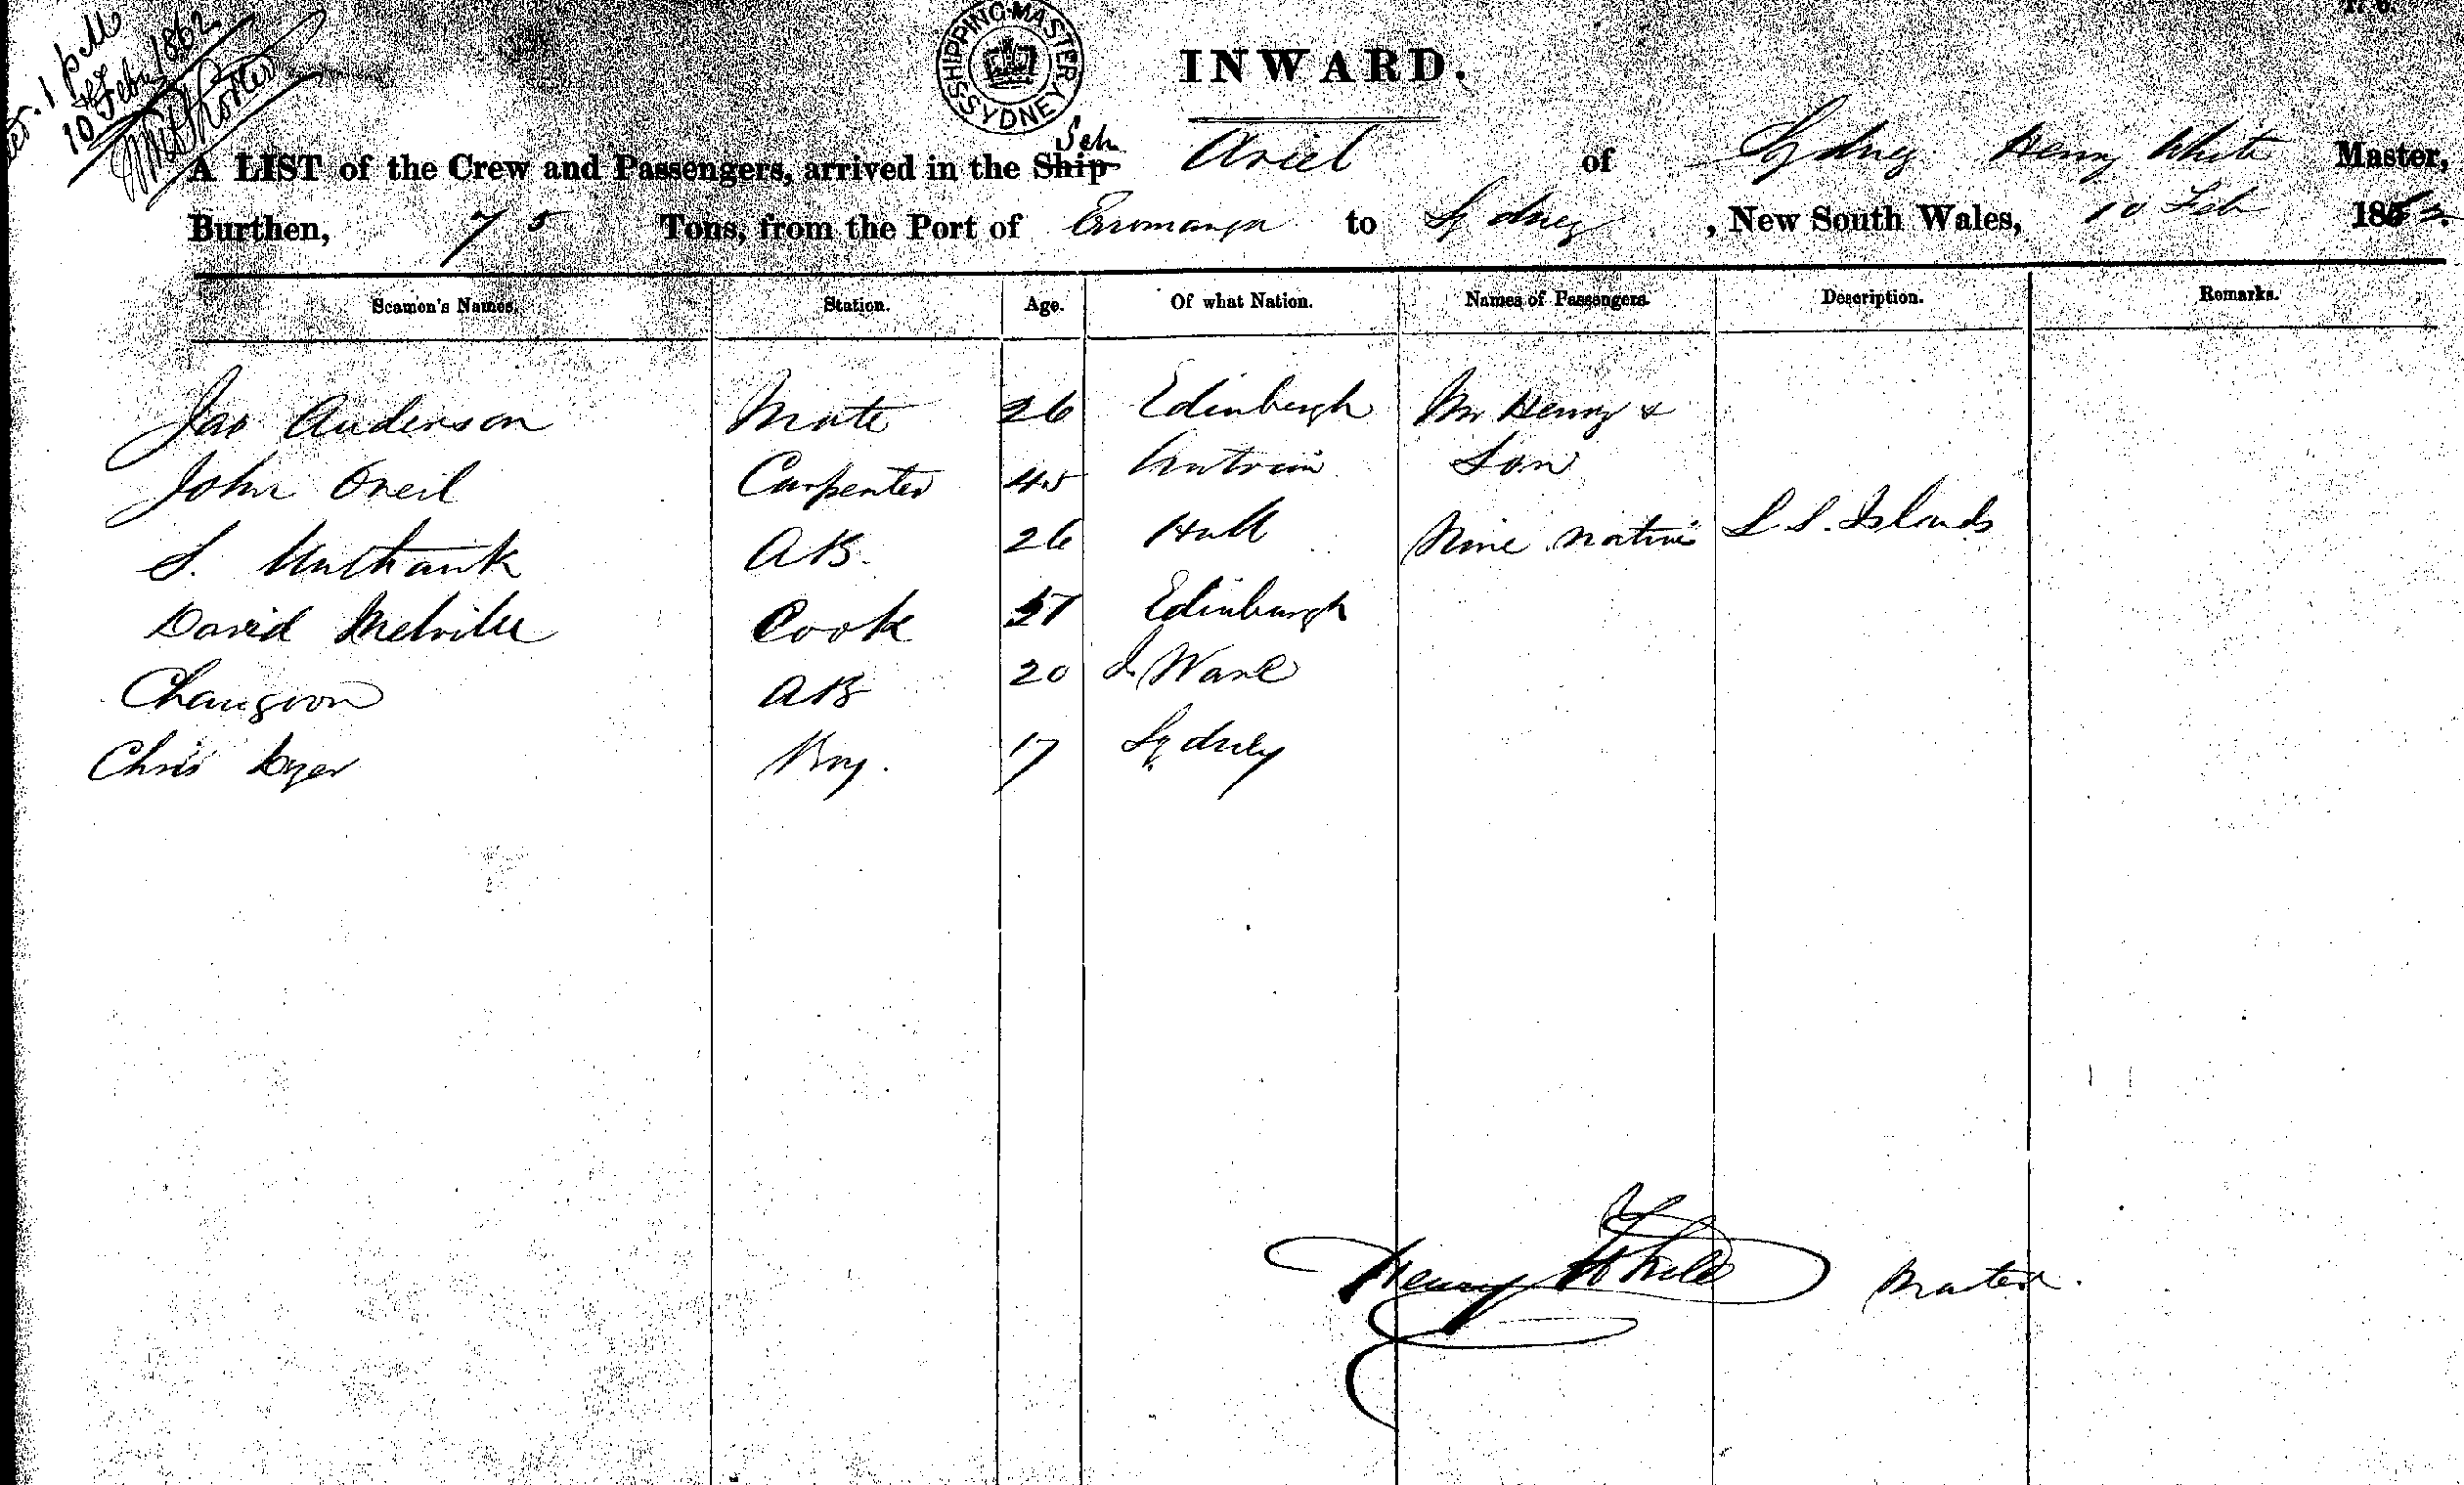 1 pM
10 Feby 1862
SHIPPING MASTER SYDNEY
INWARD.
Sch
A LIST of the Crew and Passengers, arrived in the Ship Ariel of Sydney Henry White Master,
Burthen, 75 Tons, from the Port of Erromanga to Sydney, New South Wales, 10 Feb 1862
Seamen's Names. Station. Age. Of what Nation. Names of Passengers. Description. Remarks.
Jas Anderson Mate 26 Edinburgh Mr Henry &
John Oneil Carpenter 45 Antrim Son
S. Unthank AB. 26 Hull Nine natives S.S. Islands
David Melville Cook Edinburgh
AB 20
Chris Boy. 17 Sydney
Henry White Master.